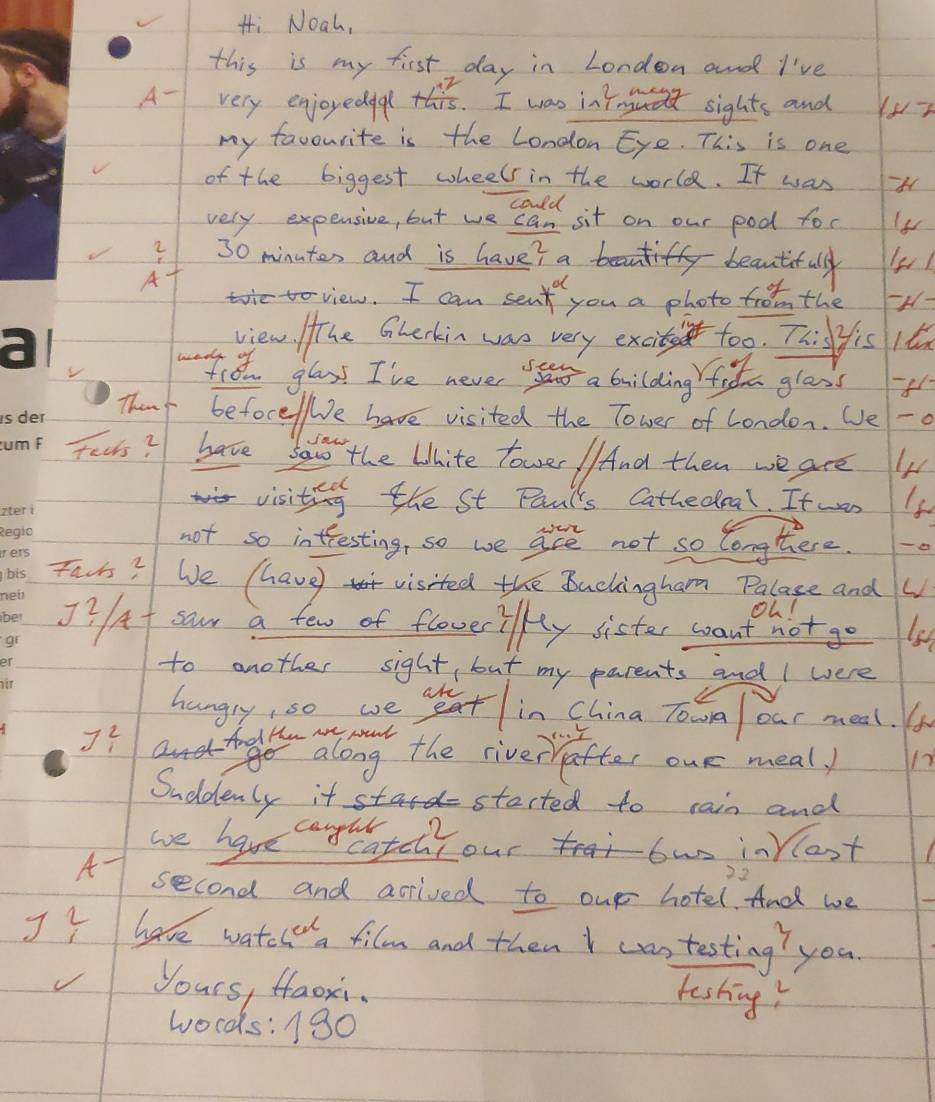 Hi Noah,
this is my first day in London and I've
A- very enjoyed this. I was in much many sights and
my favourite is the London Eye. This is one
of the biggest wheels in the world. It was
could
very expensive, but we can sit on our pod for
? 30 minutes and is have? a beautiffy beautifully
A-
view. I can sent d you a photo from of the
view.//The Gherkin was very excited too. This is
made of seen of
from glass I've never saw a building from glass
a
Then before//We have visited the Tower of London. We
Facts? have saw the White Tower//And then we are
saw
visiting ed the St Paul's Cathedral. It was
were
not so intresting, so we are not so long there.
Facts? We (have) visited the Buckingham Palase and
J?/A- saw a few of flower?//My sister want not go
Oh!
to another sight, but my parents and I were
ate
hungry, so we eat in China Town our meal.
J? and And then we went
go along the river after our meal.
Suddenly it stard started to rain and
caught
we have catch? our trai bus in last
A-
second and arrived to our hotel. And we
J? have watched a film and then I was testing? you.
Yours, Haoxi. testing?
words: 190
s der
um F
zter i
Regio
r ers
bis
nei
ber
gr
er
nir